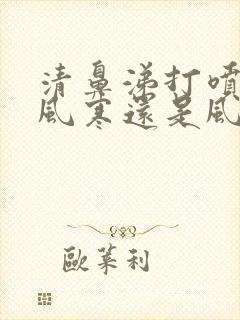 清鼻涕打噴
風寒還是風
歐萊利